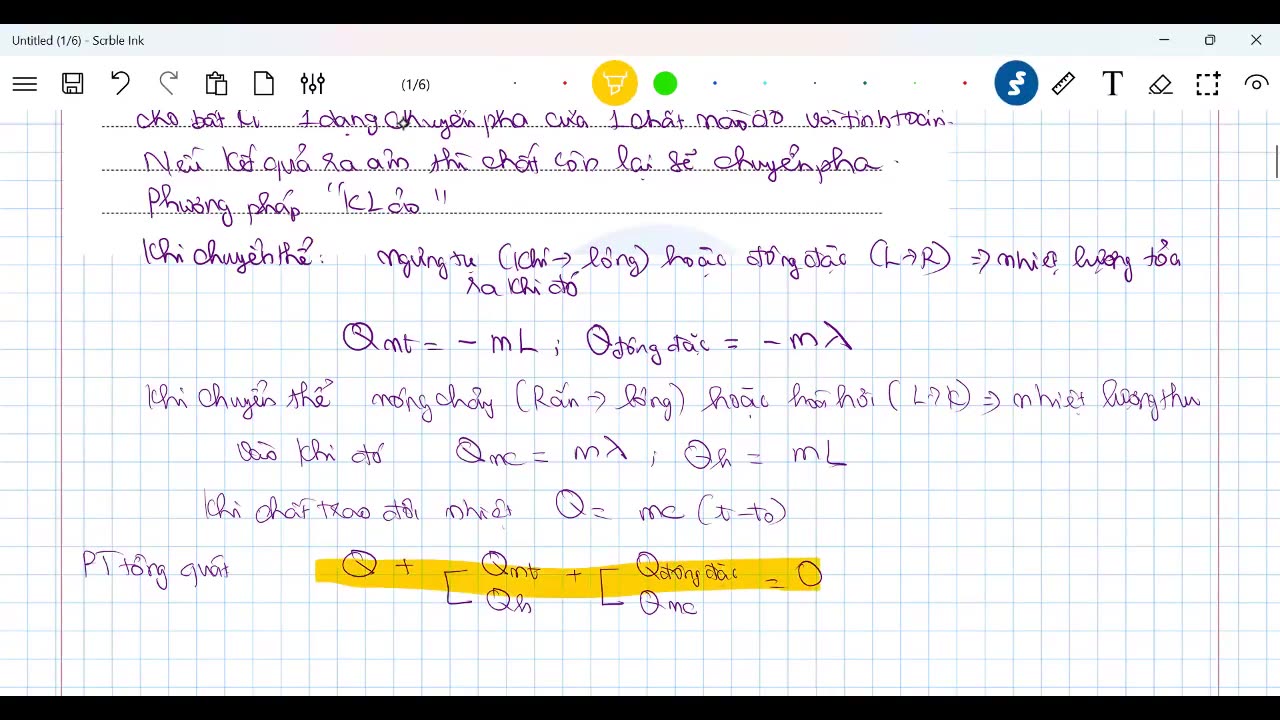 Untitled (1/6) - Scrble Ink
(1/6)
cho bất kì 1 dạng chuyển pha của 1 chất nào đó và tính toán.
Nếu kết quả ra âm thì chất còn lại sẽ chuyển pha.
Phương pháp "KL ảo"
Khi chuyển thể: ngưng tụ (khí → lỏng) hoặc đông đặc (L→R) ⇒ nhiệt lượng tỏa
ra khi đó
Qnt = - mL ; Qđông đặc = - mλ
Khi chuyển thể nóng chảy (Rắn → lỏng) hoặc hoá hơi (L→K) ⇒ nhiệt lượng thu
vào khi đó Qnc = mλ ; Qh = mL
Khi chất trao đổi nhiệt Q = mc (t-t0)
PT tổng quát Q + [ Qnt + [ Qđông đặc = 0
Qh Qnc